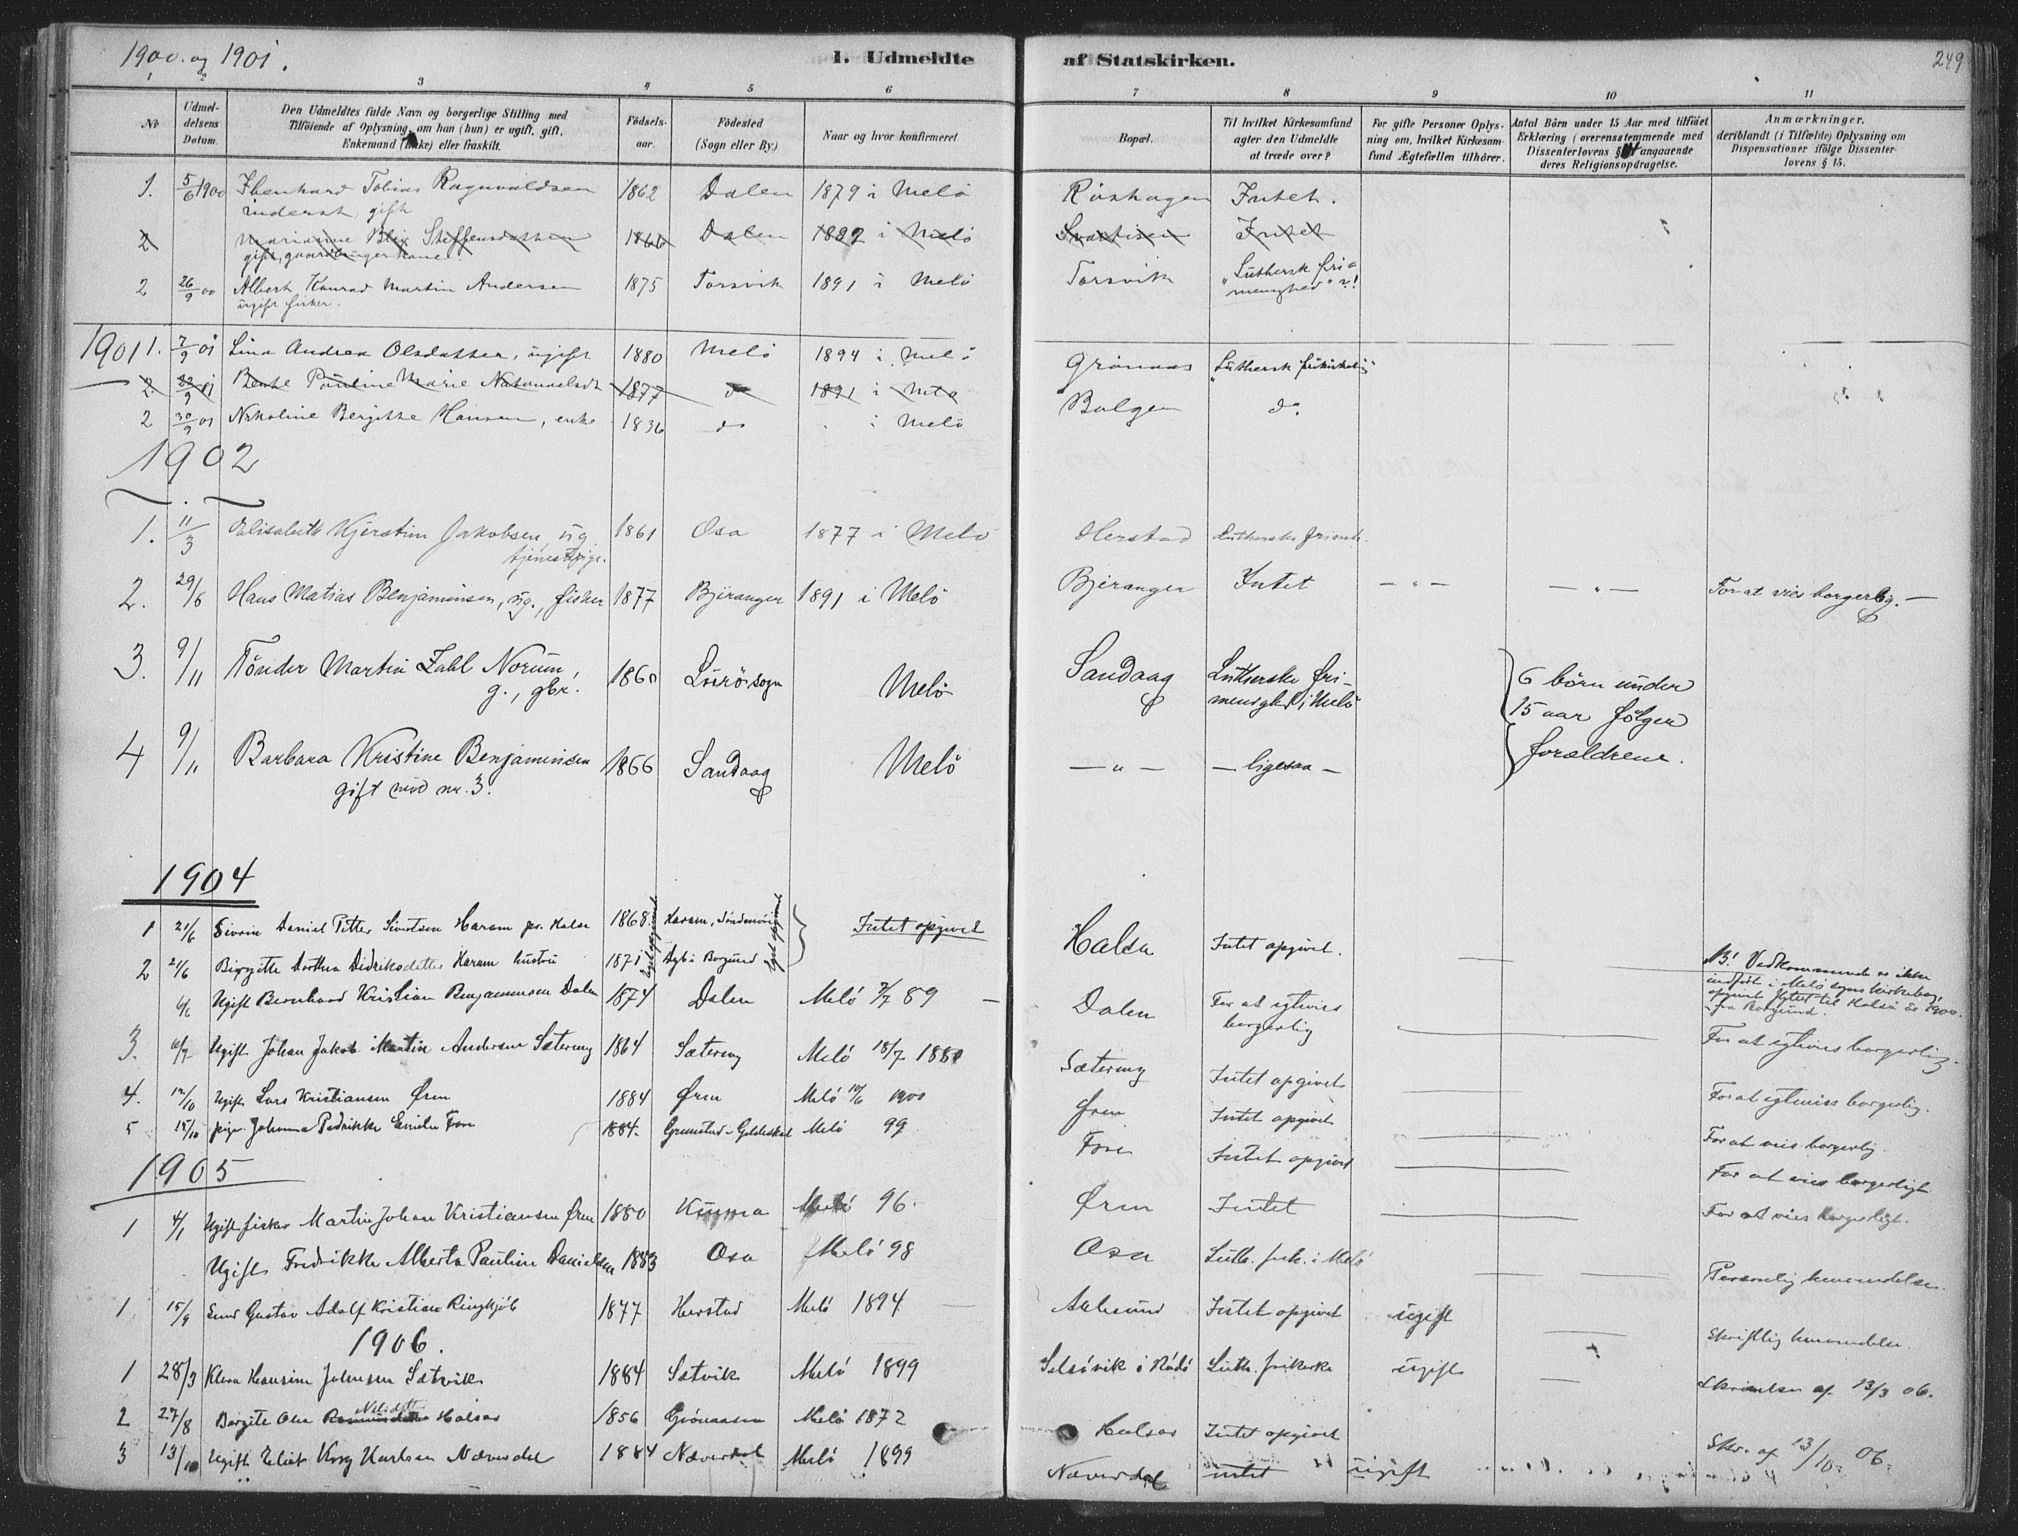 1900. og 1901.
1. Udmeldte af Statskirken.
249
1 2 3 4 5 6 7 8 9 10 11
No
Udmeldelsens Datum.
Den Udmeldtes fulde Navn og borgerlige Stilling med
Tilföiende af Oplysning, om han (hun) er ugift, gift,
Enkemand (Enke) eller fraskilt.
Födselsaar.
Födested
(Sogn eller By)
Naar og hvor konfirmeret
Bopæl.
Til hvilket Kirkesamfund
agter den Udmeldte
at træde over?
For gifte Personer Oplys-
ning om, hvilket Kirkesam-
fund Ægtefællen tilhörer.
Antal Börn under 15 Aar med tilföiet
Erklæring (overensstemmende med
Dissenterlovens § angaaende
deres Religionsopdragelse.
Anmærkninger,
deriblandt (i Tilfælde) Oplysning om
Dispensationer ifölge Dissenter-
lovens § 15.
1. 5/6 1900 Ebenhard Tobias Ragnvaldsen 1862 Dalen 1879 i Melö Röshagen Intet.
inderst, gift
2 Marianne Blix Steffensdatter 1866 Dalen 1882 i Melö Svartisen Intet
gift, gaardbrugerkone.
2 26/9 00 Albert Konrad Martin Andersen 1875 Torsvik 1891 i Melö Torsvik "Luthersk fri-
menighed"?!
ugift fisker.
1901 1. 7/9 01 Lina Andrea Olsdatter, ugift 1880 Melö 1894 i Melö Grönaas "Luthersk frikirkelig
2. 22/9 01 Bente Pauline Marie Natanaelsdt 1877 do 1891 i Melö
2 30/9 01 Nikoline Bergitte Hansen, enke 1836 do i Melö Bolgen do.
1902
1. 11/3 Elisabeth Kjerstine Jakobsen, ug. 1861 Osa 1877 i Melö Herstad Lutherske frimh.
tjenestepige.
2. 29/6 Hans Matias Benjaminsen, ug., fisker 1877 Bjeranger 1891 i Melö Bjeranger Intet — " — — " — For at vies borgerlig. —
3. 9/11 Tönder Martin Zahl Norum 1860 Luröi sogn Melö Sandaag Lutherske fri-
menighed i Melö 6 börn under
g., gbr. 15 aar fölger
4 9/11 Barbara Kristine Benjaminsen 1866 Sandaag Melö — " — — ligesaa — forældrene.
gift med nr. 3.
1904
1 21/6 Sivrin Daniel Petter Sivertsen Haram pr. Halsa 1868. Haram, Söndmöre Intet opgivet Halsa Intet opgivet.
2 21/6 Birgitte Dorthea Didriksdatter Haram hustru 1871 i Borgund
NB! Vedkommende er ikke
indfört i Melö sogns kirkebog,
opgivet flyttet til Halsa år 1900.
fra Borgund.
6/6 Ugift Bernhard Kristian Benjaminsen Dalen 1874 Dalen Melö 7/7 89 — Dalen For at egtevies
borgerlig
For at egtevies borgerlig.
3. 6/7 Ugift Johan Jakob Martin Andersen Sætereng 1864 Sætereng Melö 18/7 1880 Sætereng Intet opgivet For at egtevies borgerlig.
4. 12/10 Ugift Lars Kristiansen Ørn 1884 Ørn Melö 10/6 1900 Ørn Intet opgivet For at vies borgerlig.
5 15/10 pige Johanna Fredrikke Emilie Fore 1884. Melö 99 Fore Intet opgivet For at vies borgerligt
1905
1 4/1 Ugift fisker Martin Johan Kristiansen Ørn 1880 Kunna Melö 96. Ørn Intet For at vies borgerligt.
Ugift Fredrikke Alberta Pauline Danielsen 1883 Osa Melö 98 Osa Luth. frik. i Melö Personlig henvendelse.
1 15/9 Gustav Adolf Kristian Ringkjöb 1877 Herstad Melö 1894 Aalesund Intet opgivet ugift Skriftlig henvendelse.
1906.
1 28/3 Klara Hansine Johnsen Sætvik 1884 Sætvik Melö 1899 Selsövik i Rödö Luth. frikirke ugift Skrivelse af 13/3 06.
2 27/8 Birgite Olsa Nilsdatter Halsos 1856 Grönaasen Melö 1872 Halsos Intet opgivet
3 13/10 Ugift Eliot Korg Karlsen Næverdal 1884 Næverdal Melö 1899 Næverdal intet ugift Skr. af 13/10 06.